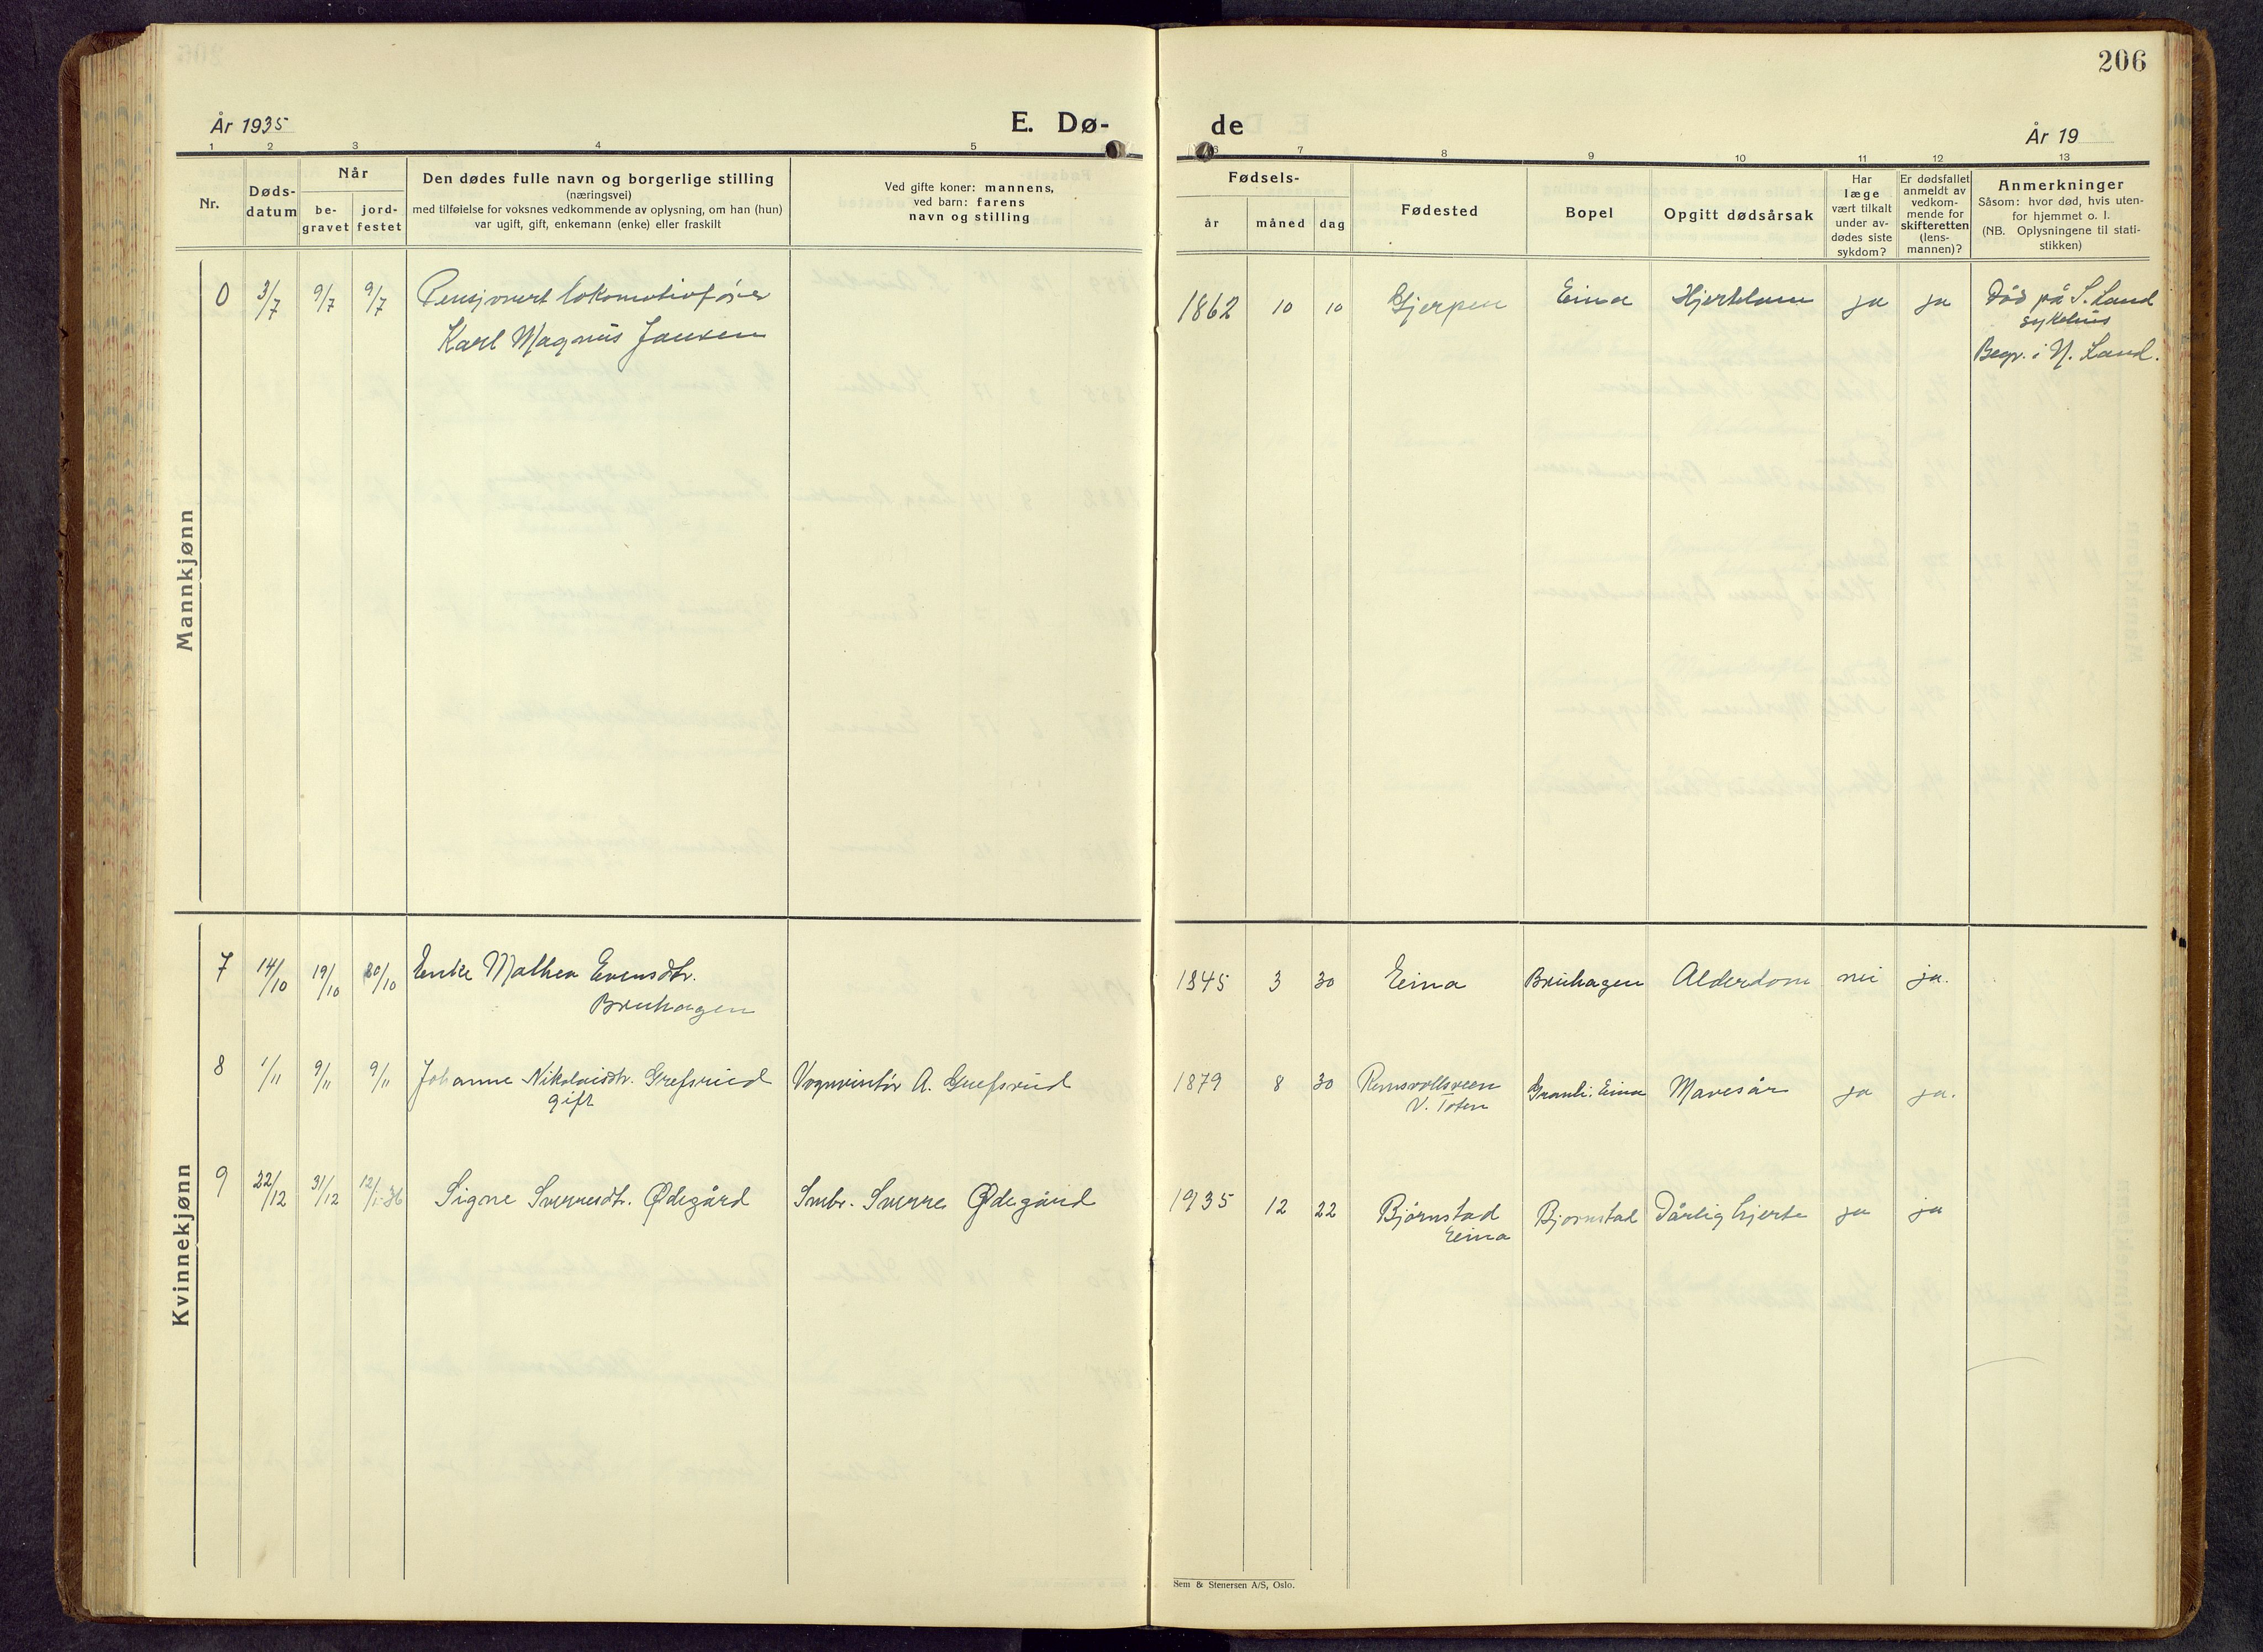 206
År 1935
E. Dø-
de
År 19
1 2 3 4 5
6 7 8 9 10 11 12 13
Nr.
Døds-
datum
Når
be-
gravet
jord-
festet
Den dødes fulle navn og borgerlige stilling
(næringsvei)
med tilføielse for voksnes vedkommende av oplysning, om han (hun)
var ugift, gift, enkemann (enke) eller fraskilt
Ved gifte koner: mannens,
ved barn: farens
navn og stilling
Fødsels-
år
måned
dag
Fødested
Bopel
Opgitt dødsårsak
Har
læge
vært tilkalt
under av-
dødes siste
sykdom?
Er dødsfallet
anmeldt av
vedkom-
mende for
skifteretten
(lens-
mannen)?
Anmerkninger
Såsom: hvor død, hvis uten-
for hjemmet o. l.
(NB. Oplysningene til stati-
stikken)
Mannkjønn
0 3/7 9/7 9/7 Pensjonert lokomotivfører
Karl Magnus Jansen
1862 10 10 Gjerpen Eina ja ja Død på S. Land
sykehus
Begr. i N. Land.
Kvinnekjønn
7 14/10 19/10 20/10 Enke Mathea Evensdtr.
Bruhagen
1845 3 30 Eina Bruhagen Alderdom nei ja.
8 1/11 9/11 9/11 Johanne Nikolaisdtr. Grefsrud Vognvisitør A. Grefsrud
gift
1879 8 30 Granli: Eina Mavesår ja ja.
V. Toten
9 22/12 31/12 12/1-36 Signe Sverresdtr. Ødegård Småbr. Sverre Ødegård
1935 12 22 Bjørnstad Bjørnstad Dårlig hjerte ja ja
Eina
Sem & Stenersen A/S, Oslo.